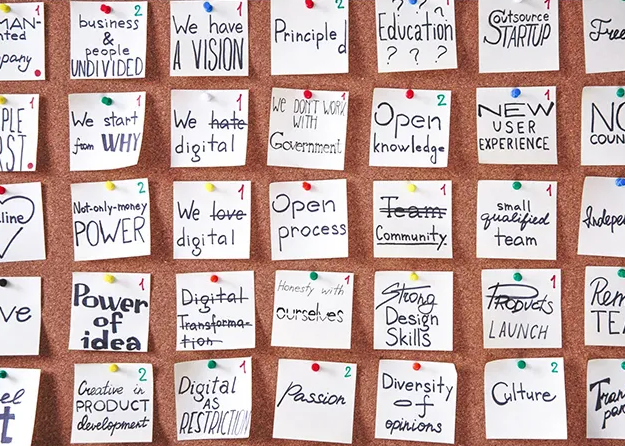 MAN-
nted
pany
1
business
&
people
UNDIVIDED
2
We have
A VISION
1
Principled
2
Education
? ? ?
? ?
Outsource
STARTUP
1
Free
PLE
RST
1
We start
from WHY
2
We hate
digital
1
We DON'T WORK
WITH
Government
1
Open
knowledge
2
NEW
USER
EXPERIENCE
1
NO
COUN
line
Not-only-money
POWER
2
We love
digital
1
Open
process
1
Team
Community
1
small
qualified
team
1
Indepe
ve
Power
of
idea
1
Digital
Transforma-
tion
1
Honesty with
ourselves
1
Strong
Design
Skills
1
Products
LAUNCH
1
Rem
TEA
el
t
Creative in
PRODUCT
development
2
Digital
AS
RESTRICTION
1
Passion
2
Diversity
of
opinions
2
Culture
2
Tran
par